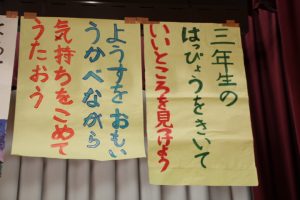 三年生の
はっぴょうをきいて
いいところを見つけよう
ようすをおもい
うかべながら
気持ちをこめて
うたおう